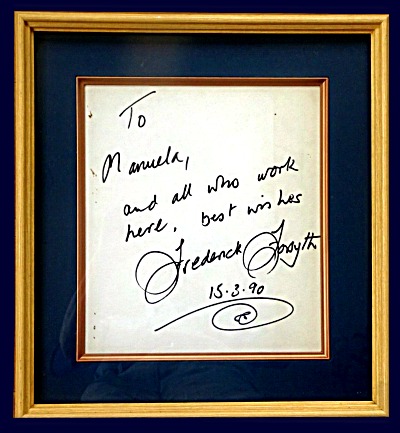 To
Manuela,
and all who work
here, best wishes
Frederick Forsyth
15.3.90